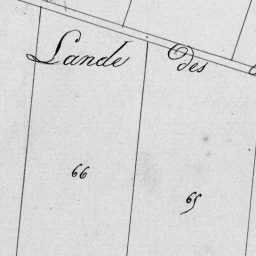 Lande des
66
65